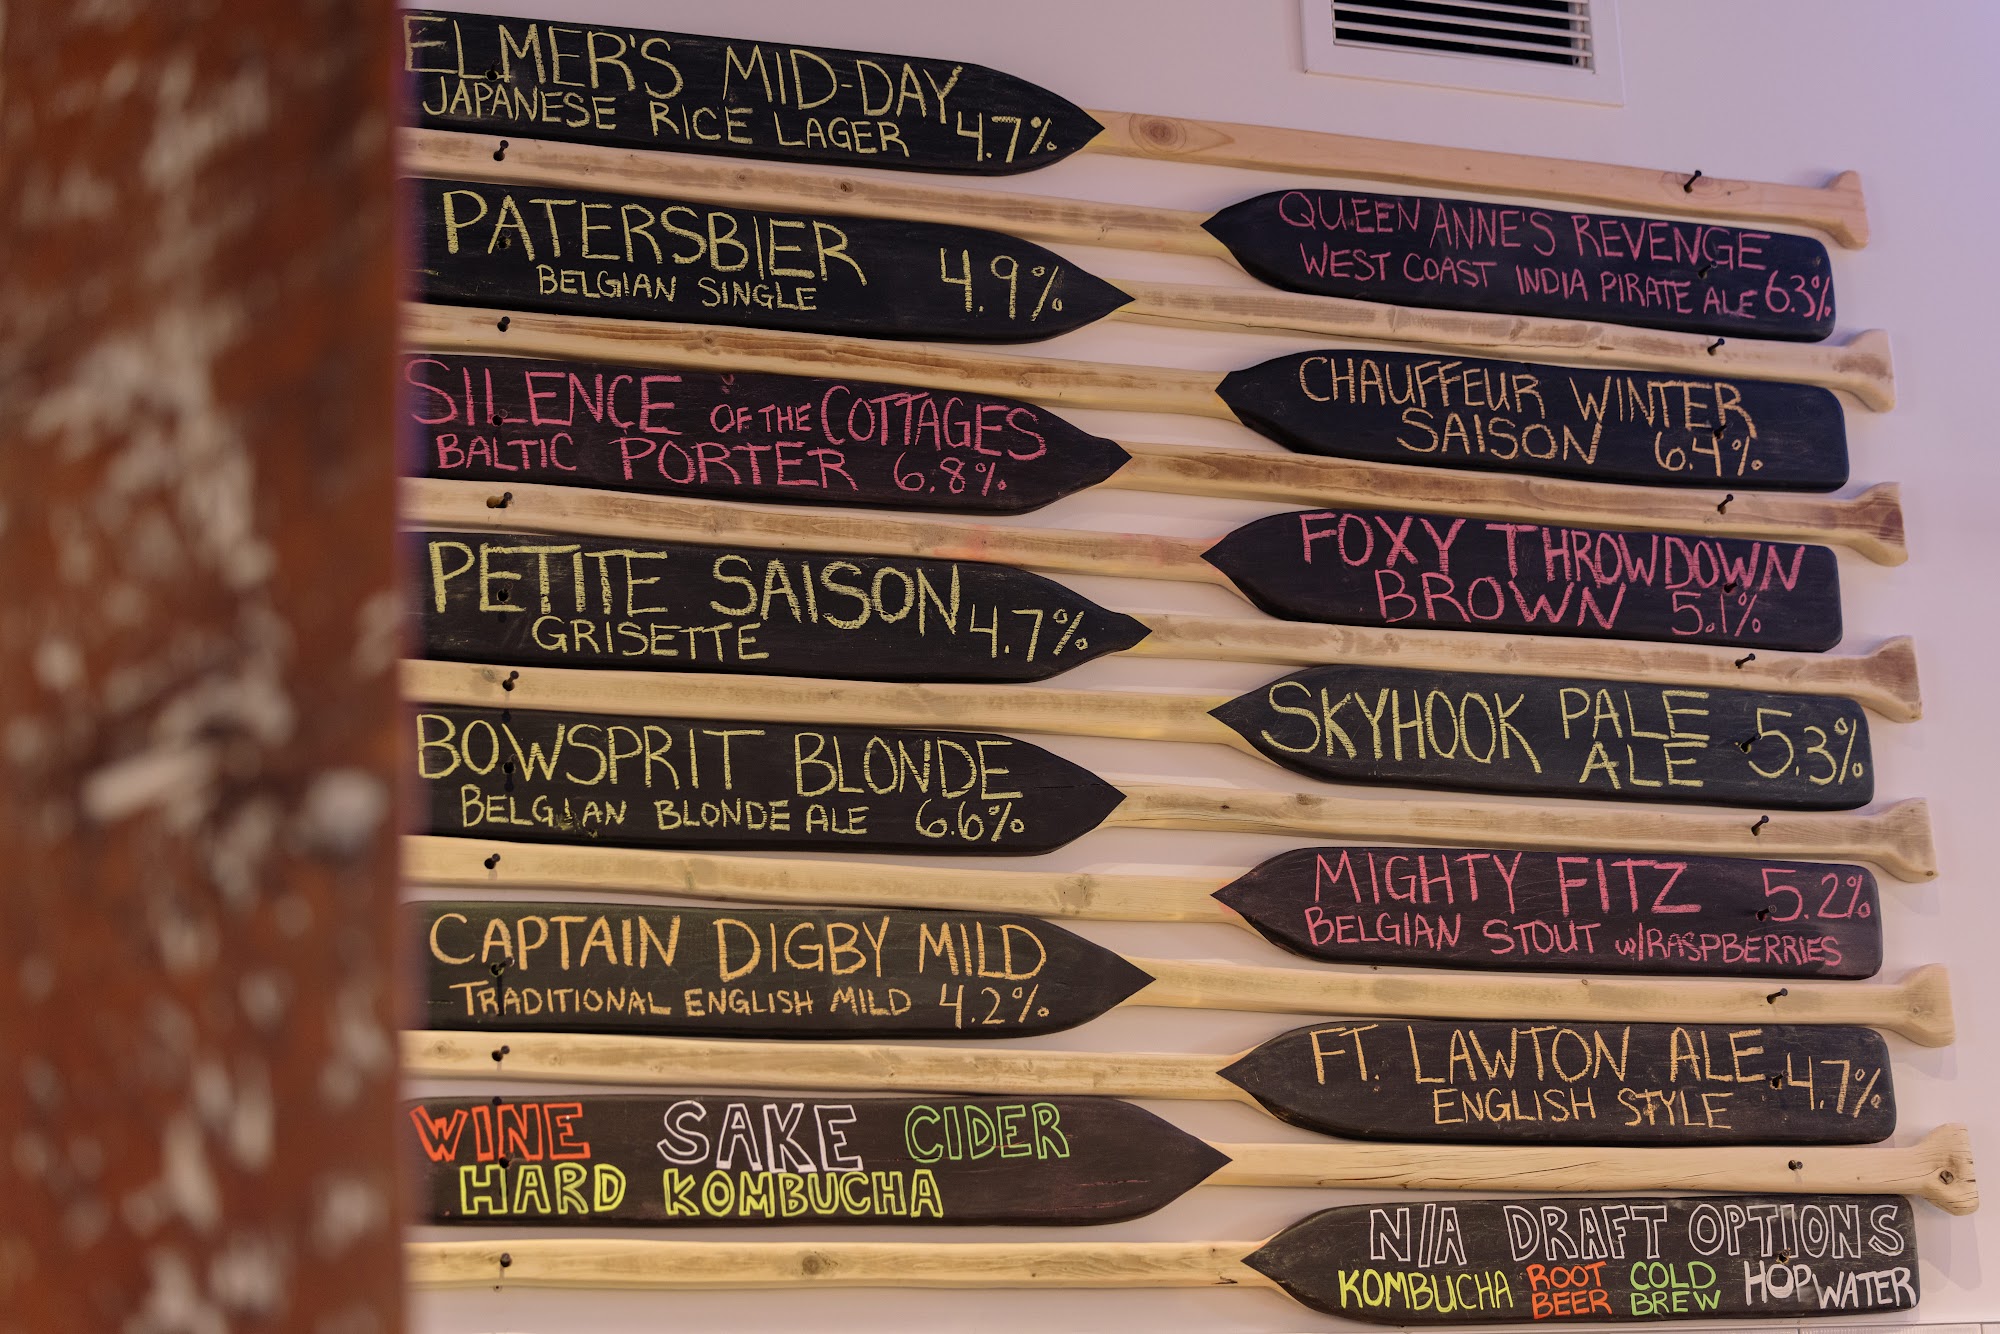 ELMER'S MID-DAY
JAPANESE RICE LAGER 4.7%
PATERSBIER
BELGIAN SINGLE 4.9%
SILENCE OF THE COTTAGES
BALTIC PORTER 6.8%
PETITE SAISON
GRISETTE 4.7%
BOWSPRIT BLONDE
BELGIAN BLONDE ALE 6.6%
CAPTAIN DIGBY MILD
TRADITIONAL ENGLISH MILD 4.2%
WINE SAKE CIDER
HARD KOMBUCHA
QUEEN ANNE'S REVENGE
WEST COAST INDIA PIRATE ALE 6.3%
CHAUFFEUR WINTER
SAISON 6.4%
FOXY THROWDOWN
BROWN 5.1%
SKYHOOK PALE
ALE 5.3%
MIGHTY FITZ 5.2%
BELGIAN STOUT W/RASPBERRIES
FT. LAWTON ALE 4.7%
ENGLISH STYLE
N/A DRAFT OPTIONS
KOMBUCHA ROOT BEER COLD BREW HOP WATER